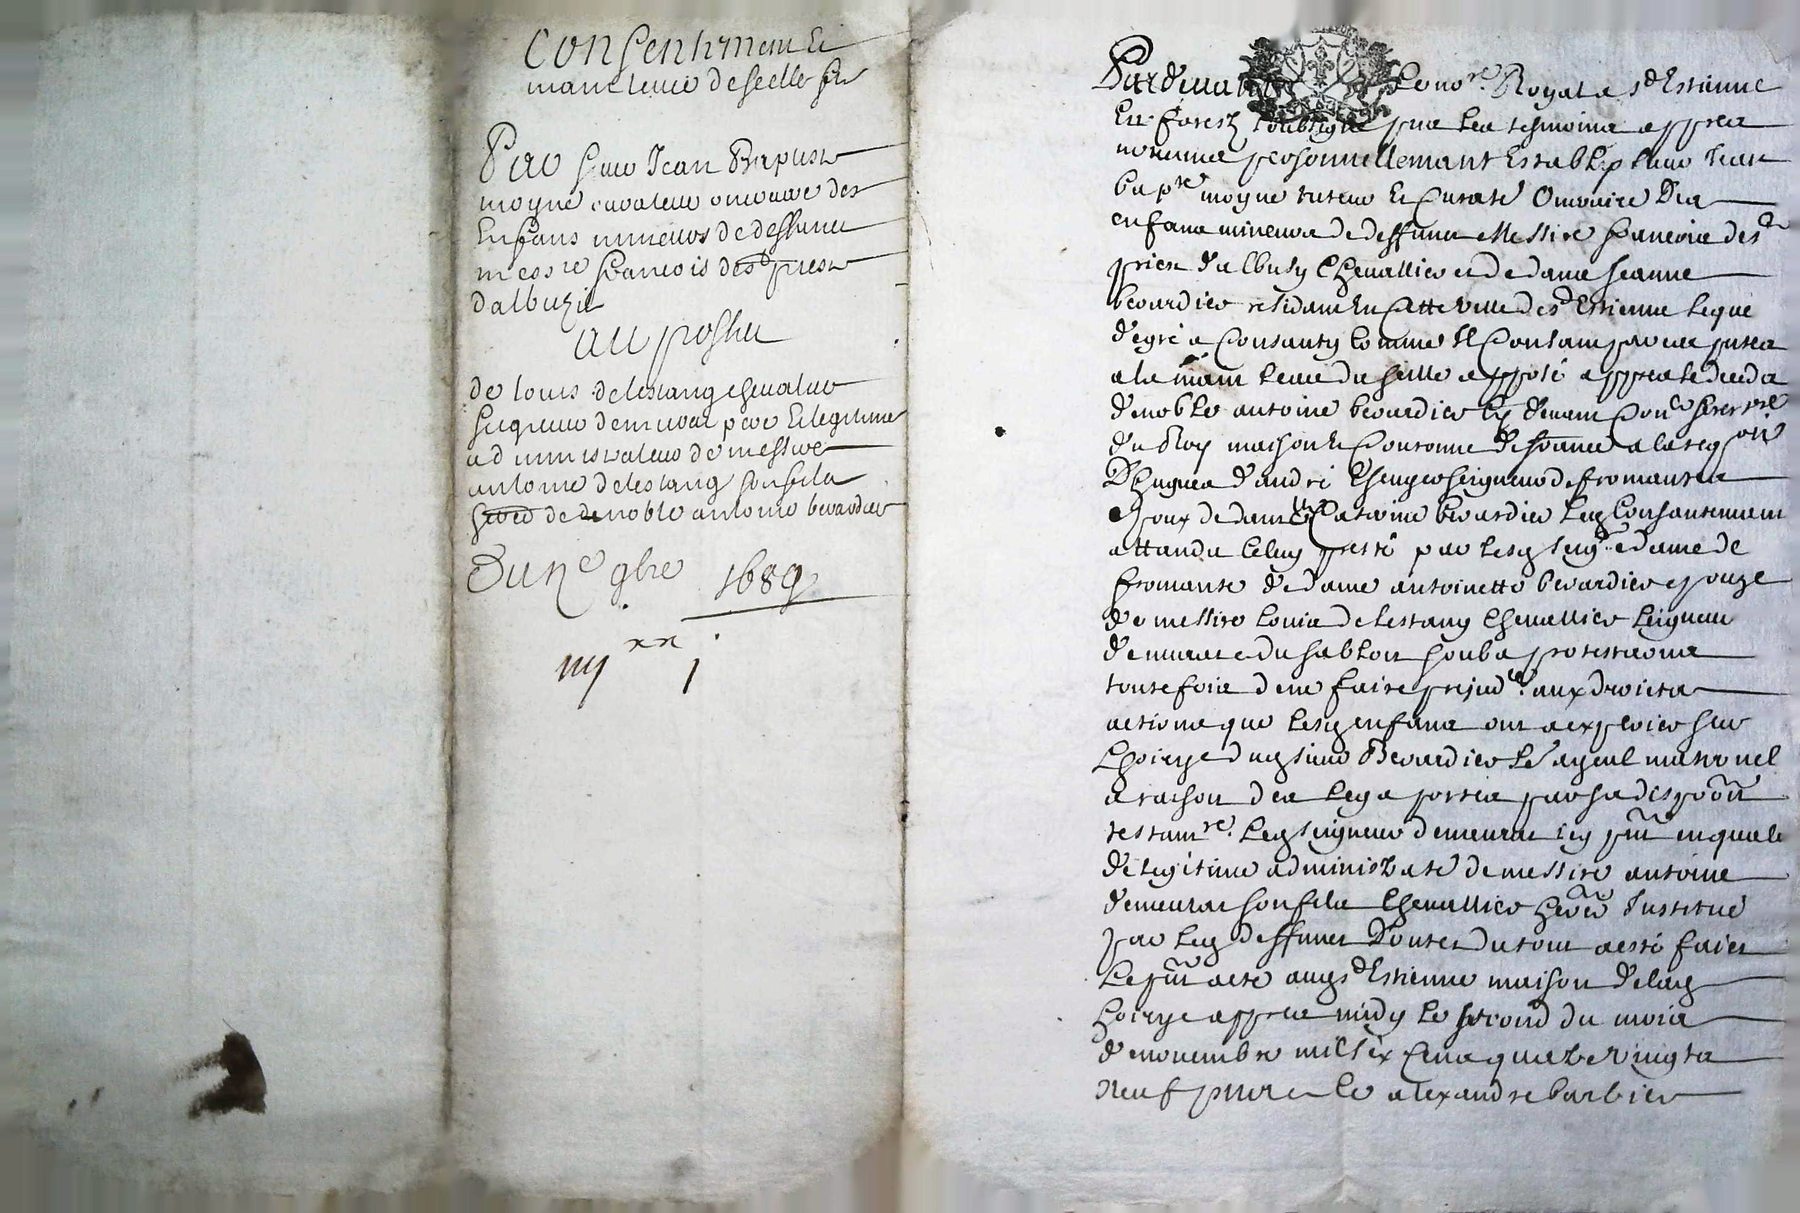 Consentiment Et
mainlevée de scellé fte
Par Sieur Jean Baptiste
moyne curateur onoraire des
Enfans mineurs de deffunct
messre françois des priest
dalbuzi
au proffict
de louis delestang chevalier
seigneur demurat pere et legitime
administrateur de messire
antoine delestang son fils
de noble antoine berardier
Du 2e 9bre 1689
iiij xx j
Pardevant Le nore Royal a st Estienne
En forest soubsigné pnt les tesmoins appres
nommes personnellemant Estably sieur Jean
bapte moyne tuteur Et Curate Onoraire Des
enfans mineurs de deffunct Messire francois des st
priest dalbusy Chevallier et de dame Jeanne
berardier residant En Cette ville de st Estienne Leque
de gré a Consanty comme Il Consant par ces pntes
a la main levee du scellé apposé appres le deces
de noble antoine berardier Con.er secret.re
du Roy maison Et Couronne de france a la req.on
D'hugues d'andré Escuyer seigneur de fromantes
Espoux de dame Caterine berardier Led Consantemant
attandu Celuy presté par lesd seig.r Et dame de
fromante Et dame antoinette berardier espouze
de messire Louis delestang Chevallier seigneur
de murat et du sablon soubs protestations
toutefois de ne faire prejud.ce aux droits
actions que lesd enfans ont a exercer sur
Lhoirye dud sieur Berardier Le ayeul maternel
a raison des legs portes par sa dispoon
testam.re Led seigneur de meurat icy pnt en qualé
de legitime administraté de messire antoine
de meurat son fils Chevallier herer Institué
par led deffunct Dont et du tout a esté faict
Le pnt acte aud st Estienne maison de lad
hoirye appres midy le second du mois
de novembre mil six cens quatre vingts
neuf pntz le alexandre barbier